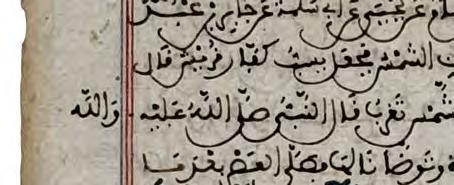 عن يحيى عن أبي سلمة عن جابر بن عبد
الشمس فجعل يسب كفار قريش قال
الشمس تغرب قال النبي صلى الله عليه والله
وتوضأنا لها فصلى العصر بعد ما